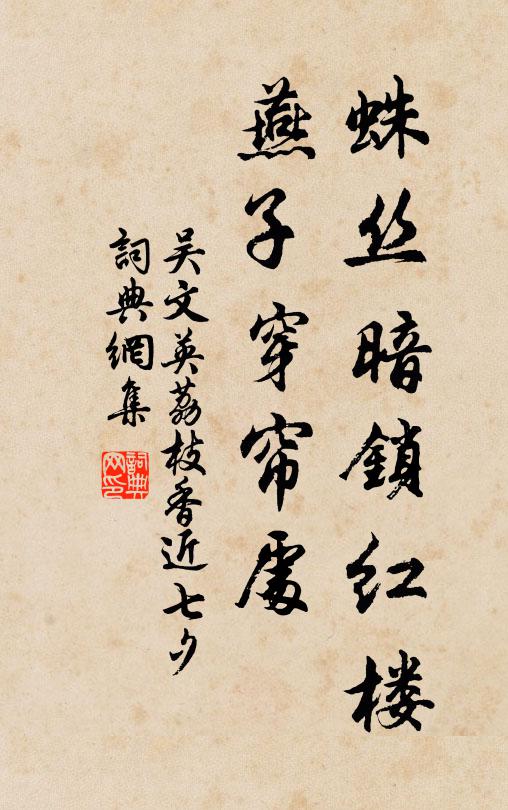 蛛丝暗鎖红楼
燕子穿帘處
吴文英荔枝香近七夕
詞典網集
詞典网印